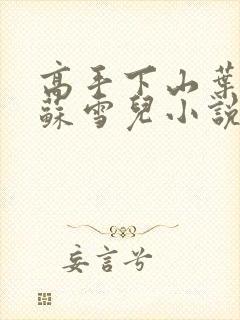 高手下山葉
蘇雪兒小說
妄言兮